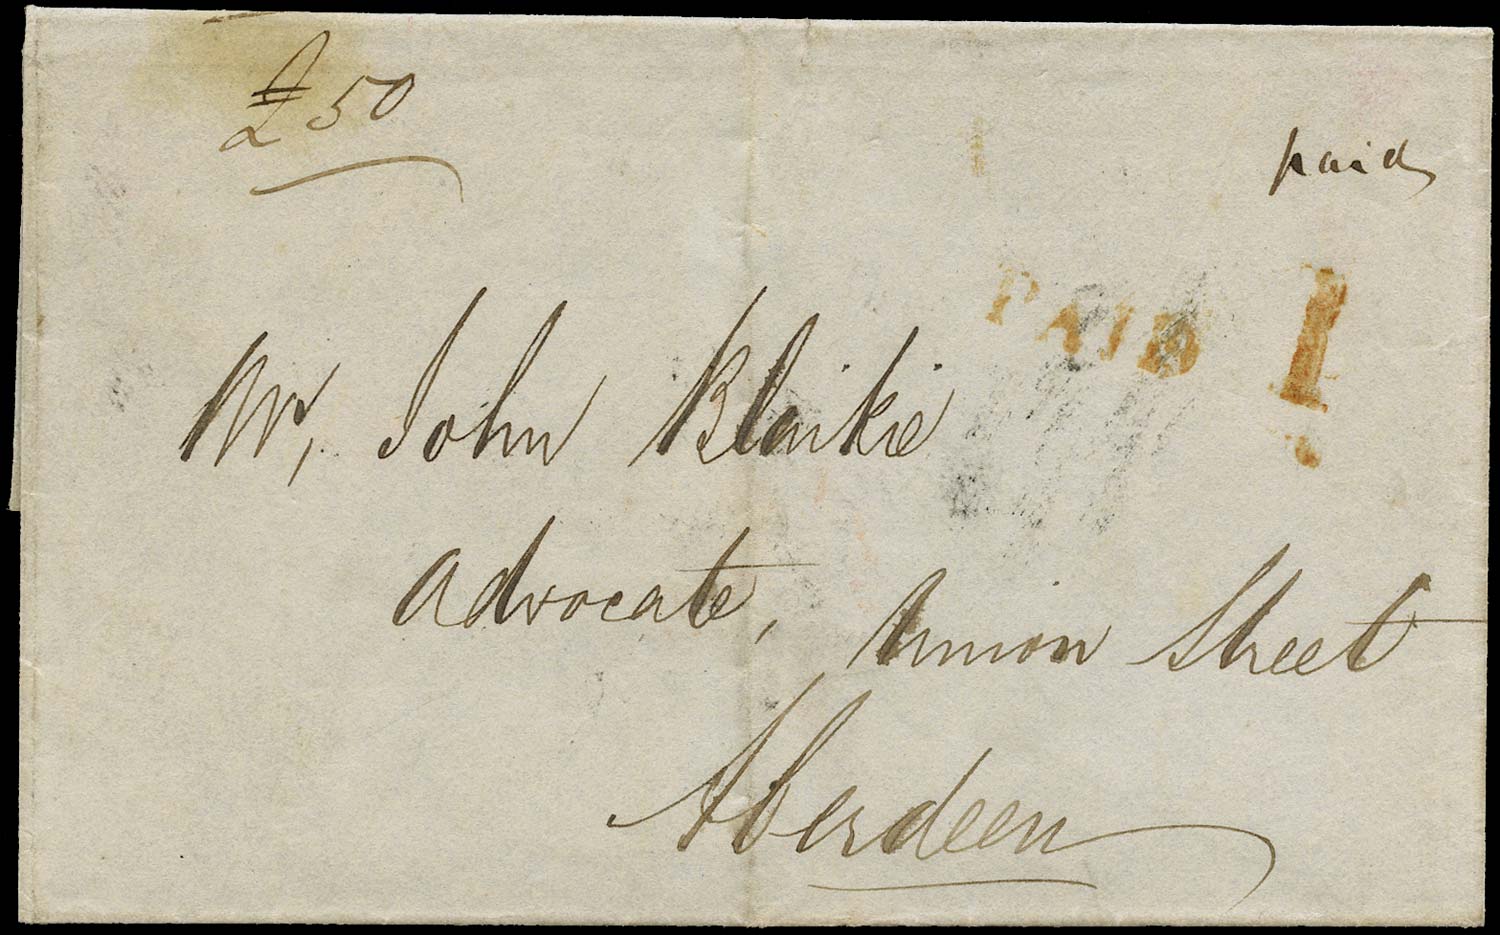 £50
paid
PAID 1
Mr, John Blaikie
Advocate, Union Street
Aberdeen